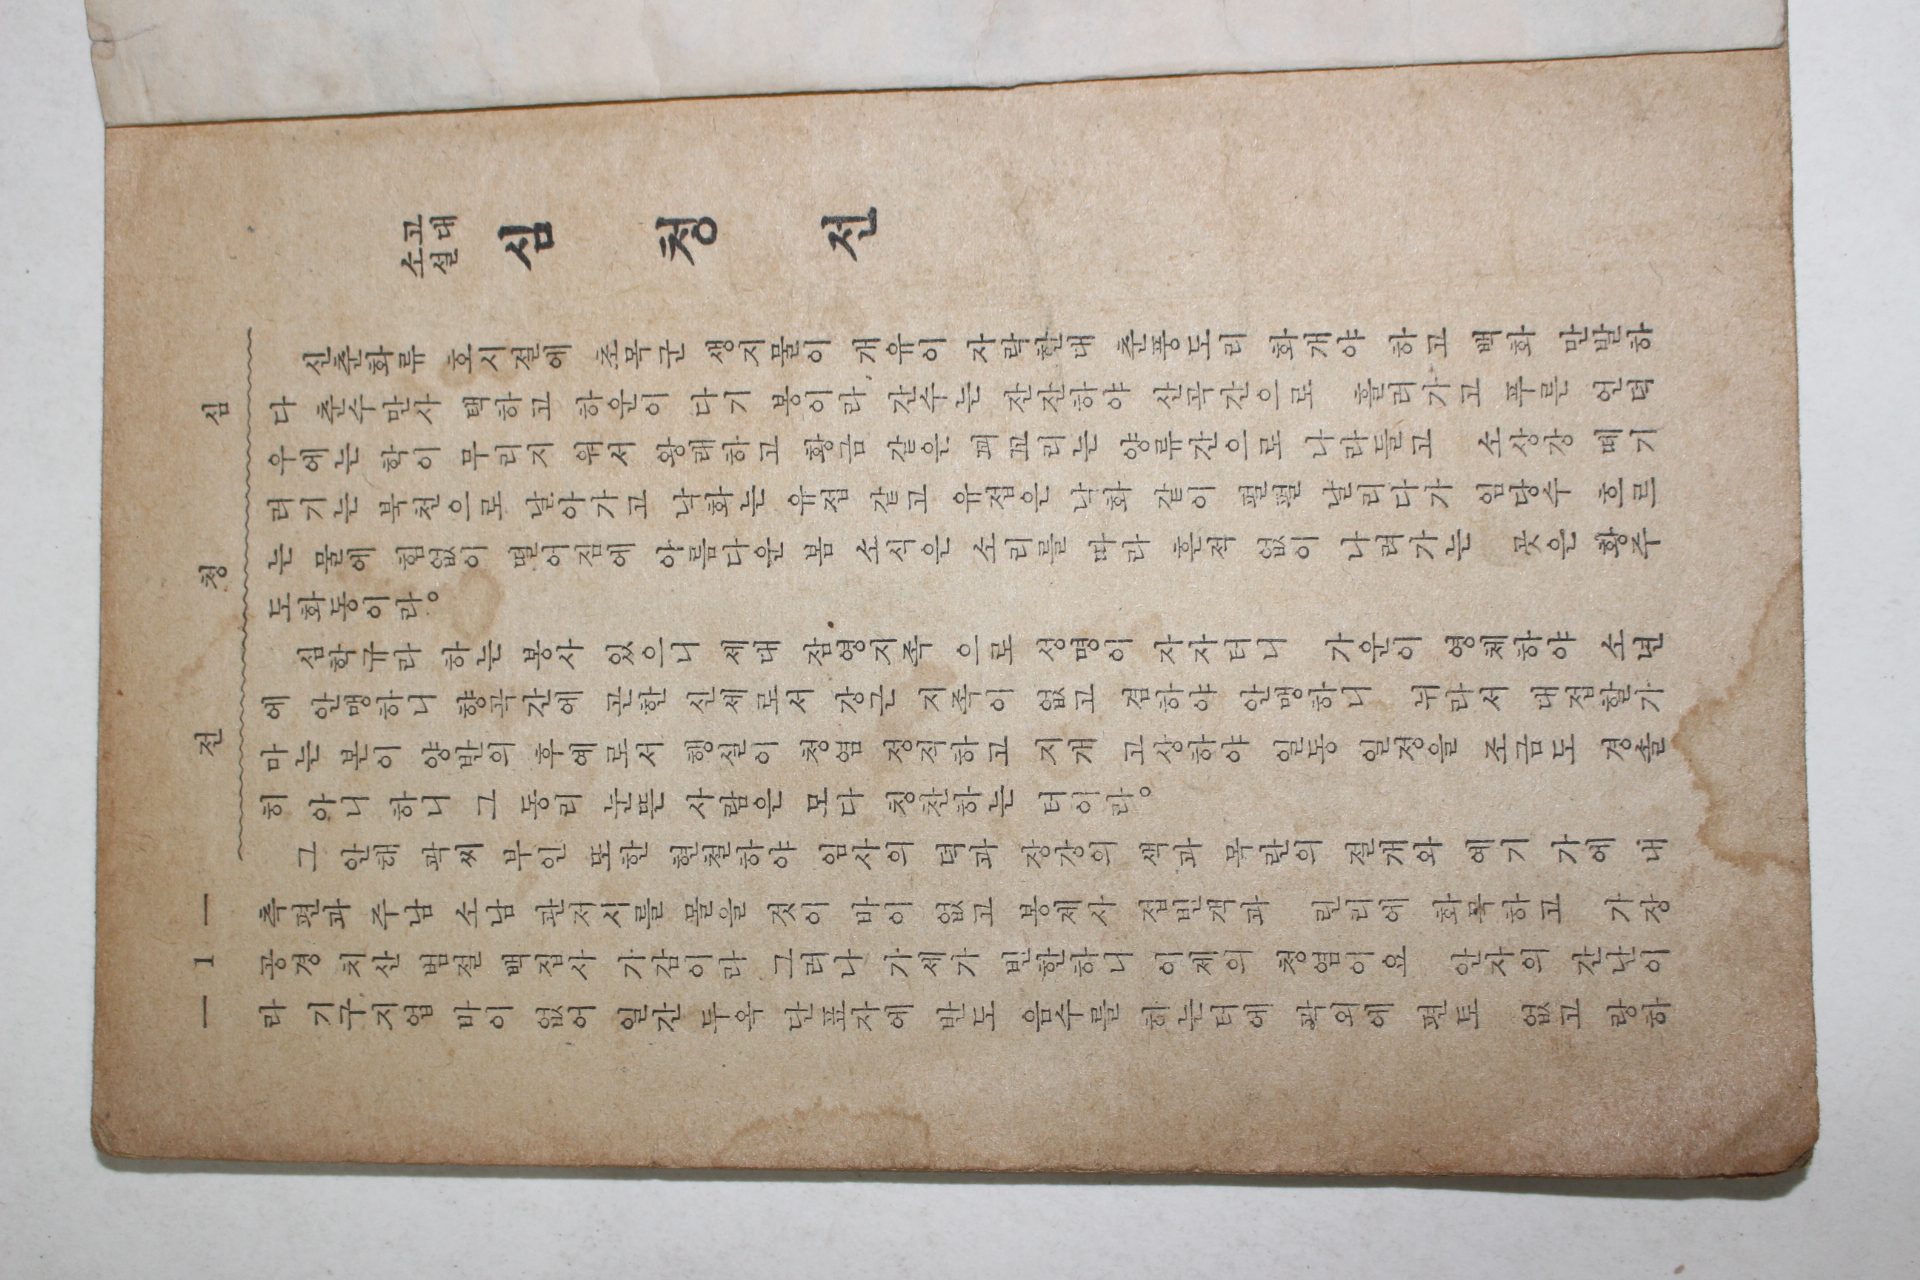 고대
소설
심청전
신춘화류 호시절에 초목군 생지물이 개유이 자락한대 춘풍도리 화개야 하고 백화 만발하
다 춘수만사 택하고 하운이 다기 봉이라 간수는 잔잔하야 산곡간으로 흘러가고 푸른 언덕
우에는 학이 무리지 워서 왕래하고 황금 같은 꾀꼬리는 양류간으로 나라들고 소상강 떼기
러기는 북천으로 날아가고 낙화는 유접 같고 유접은 낙화 같이 펄펄 날리다가 임당수 흐르
는 물에 힘없이 떨어짐에 아름다운 봄 소식은 소리를 따라 흔적 없이 나려가는 곳은 황주
도화동이라。
심학규라 하는 봉사 있으니 세대 잠영지족 으로 성명이 자자터니 가운이 영체하야 소년
에 안맹하니 향곡간에 곤한 신세로서 강근 지족이 없고 겸하야 안맹하니 뉘라서 대접할가
마는 본이 양반의 후예로서 행실이 청염 정직하고 지개 고상하야 일동 일정을 조금도 경솔
히 아니 하니 그 동리 눈뜬 사람은 모다 칭찬하는 터이라。
그 안해 곽씨 부인 또한 현철하야 임사의 덕과 장강의 색과 목란의 절개와 예기 가예 내
측편과 주남 소남 관저시를 몰을 것이 바이 없고 봉제사 접빈객과 린리에 화목하고 가장
공경 치산 범절 백집사 가감이라 그러나 가세가 빈한하니 이제의 청염이요 안자의 간난이
라 기구지업 바이 없어 일간 두옥 단표자에 반도 음수를 하는터에 곽외에 편토 없고 랑하
심청전
— 1 —